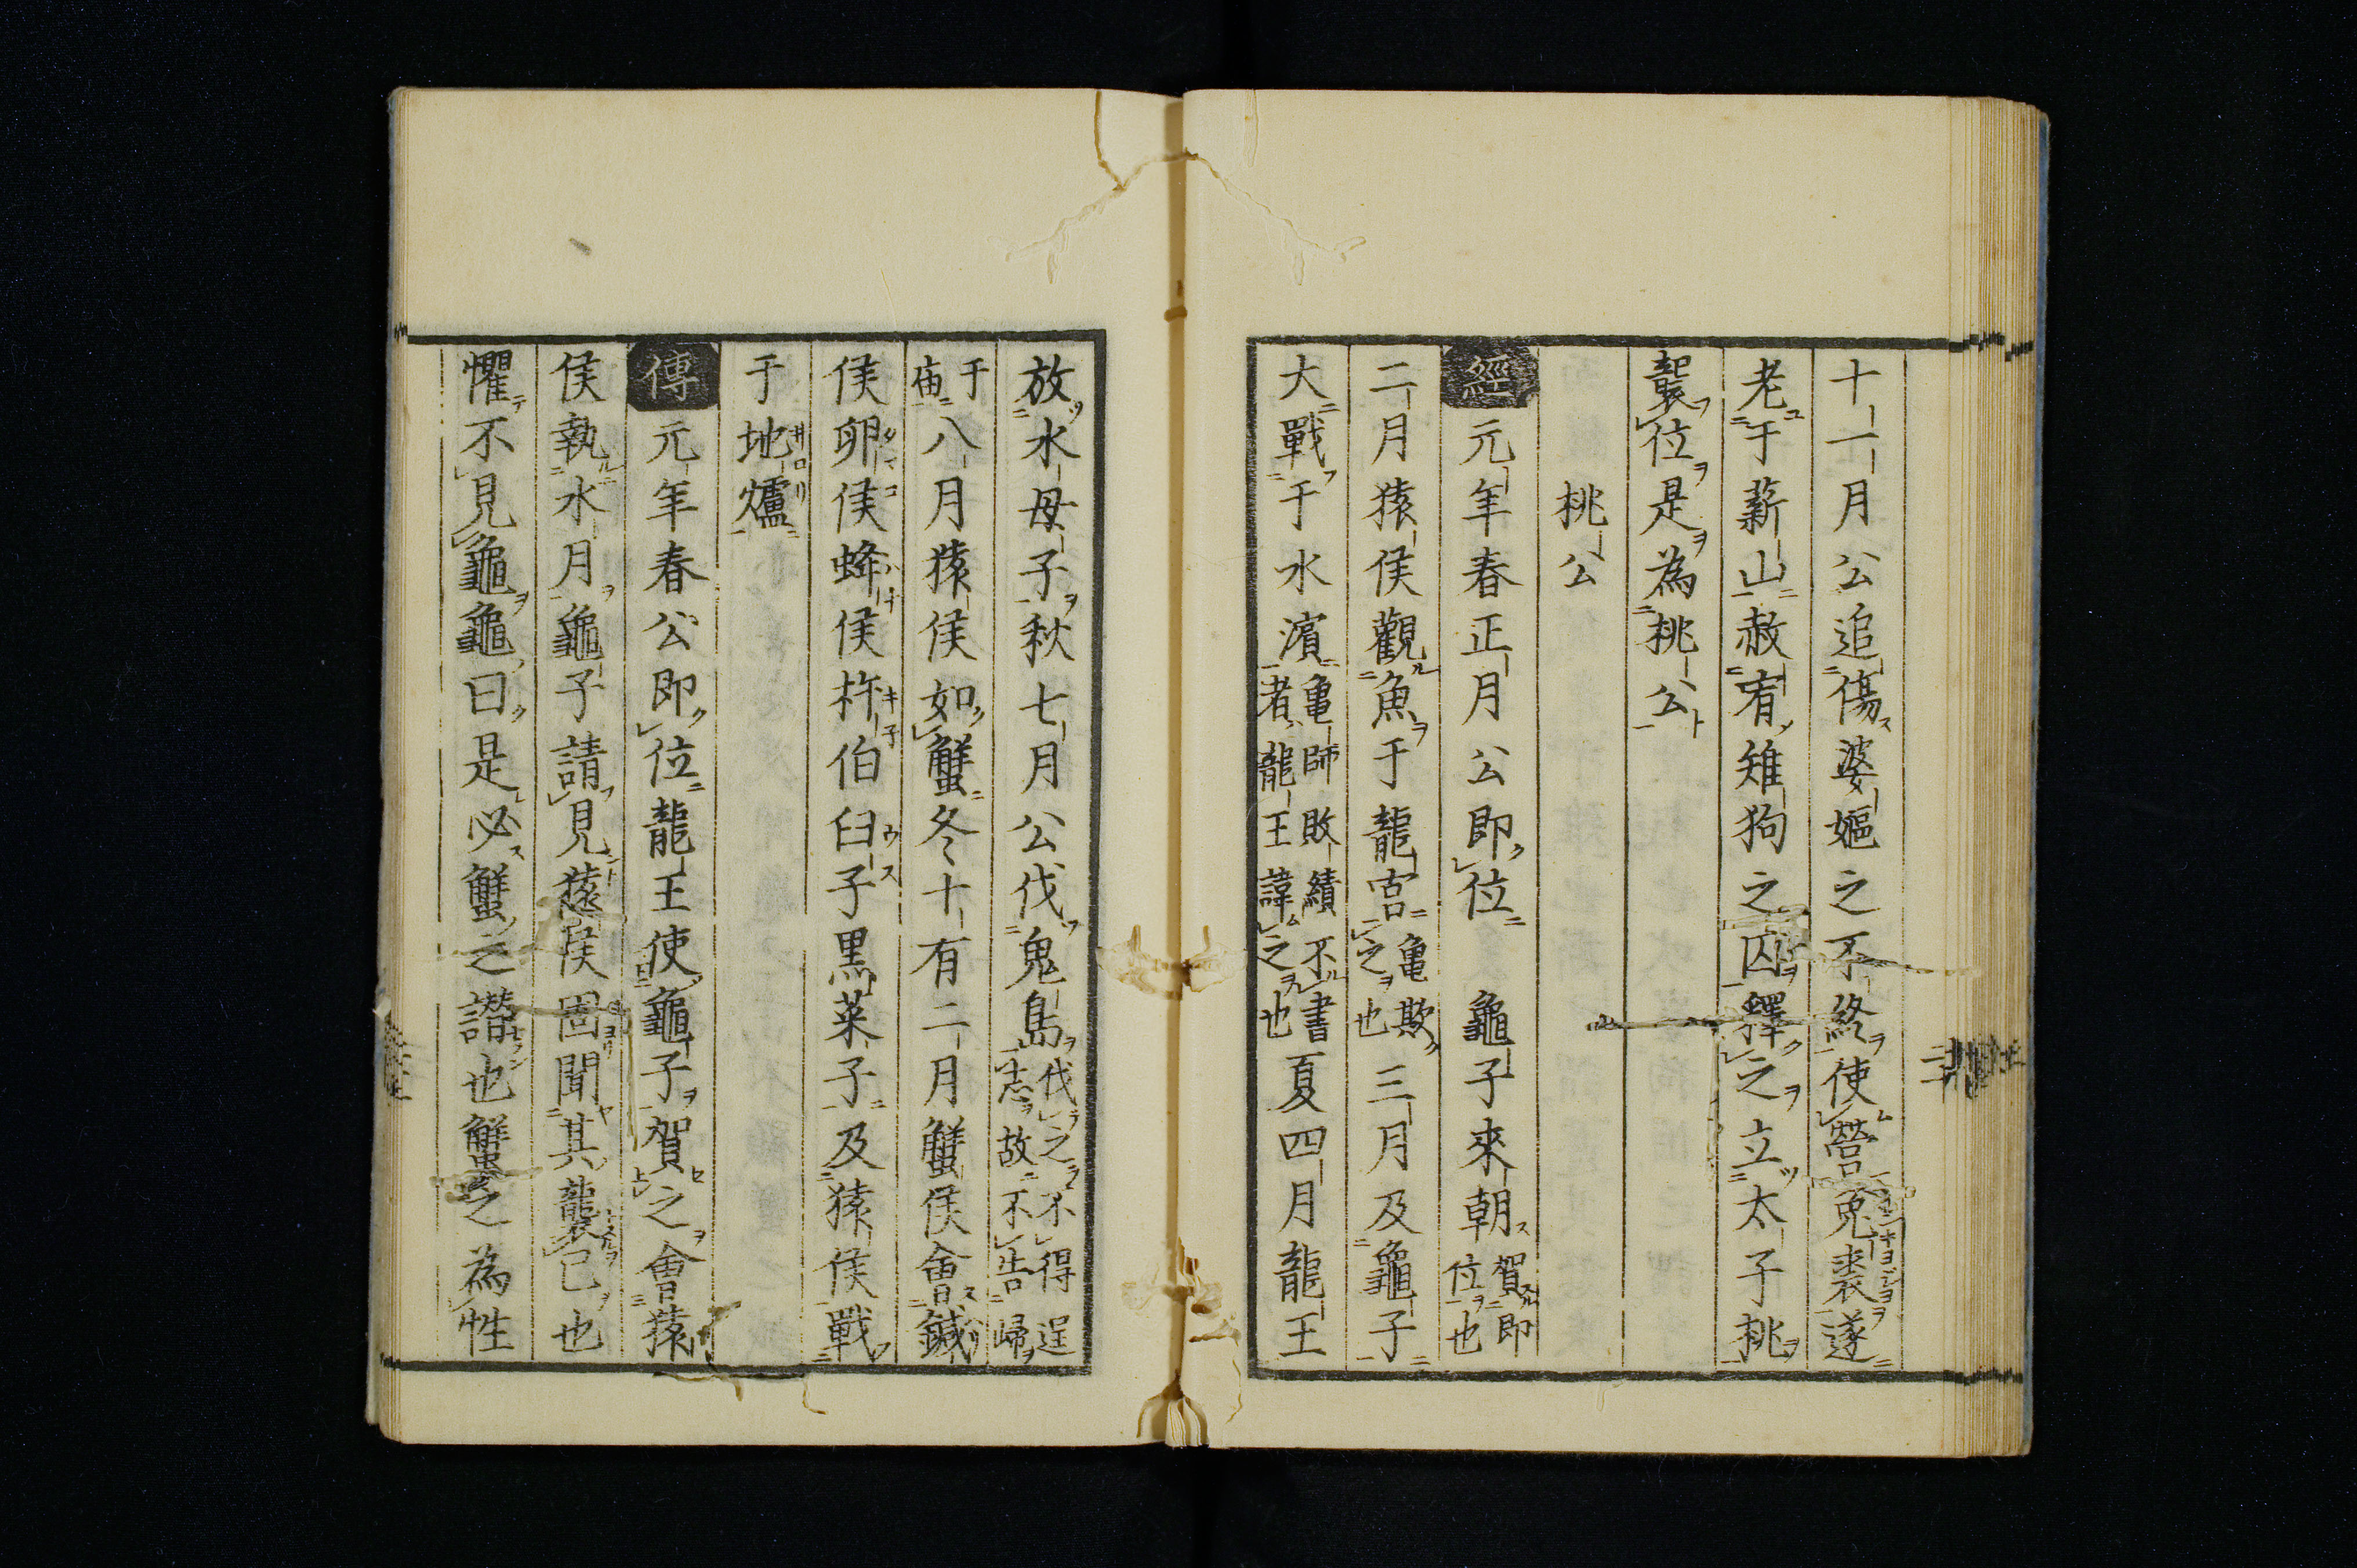 十一月公追傷婆嫗之不終使營兎裘遂
老于薪山赦宥雉狗之囚釋之立太子桃
襲位是為桃公
桃公
經元年春正月公即位 龜子來朝賀即位也
二月猿侯觀魚于龍宮亀欺之也三月及龜子
大戰于水濱亀師敗績不書者龍王諱之也夏四月龍王
放水母子秋七月公伐鬼島伐之不得逞志故不告歸
于庙八月猿侯如蟹冬十有二月蟹侯會鍼
侯卵侯蜂侯杵伯臼子黒菜子及猿侯戰
于地爐
傳元年春公即位龍王使龜子賀之會猿
侯執水月龜子請見猿侯固聞其襲已也
懼不見龜龜曰是必蟹之譖也蟹之為性